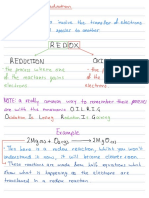 involve the transfer of electrons
species to another
REDOX
REDUCTION
the process where one
of the reactants gains
electrons
electrons
NOTE: A really common way to remember these process
are with the mnemonic O.I.L.R.I.G
Oxidation Is Losing Reduction Is Gaining
Example
2Mg(s) + O2(g) → 2MgO(s)
This here is a redox reaction, whilst you won't
understand it now, it will become clearer soon.
These reactions are made from half equations which
show what is happening as the electrons are
transferred in a redox reaction.